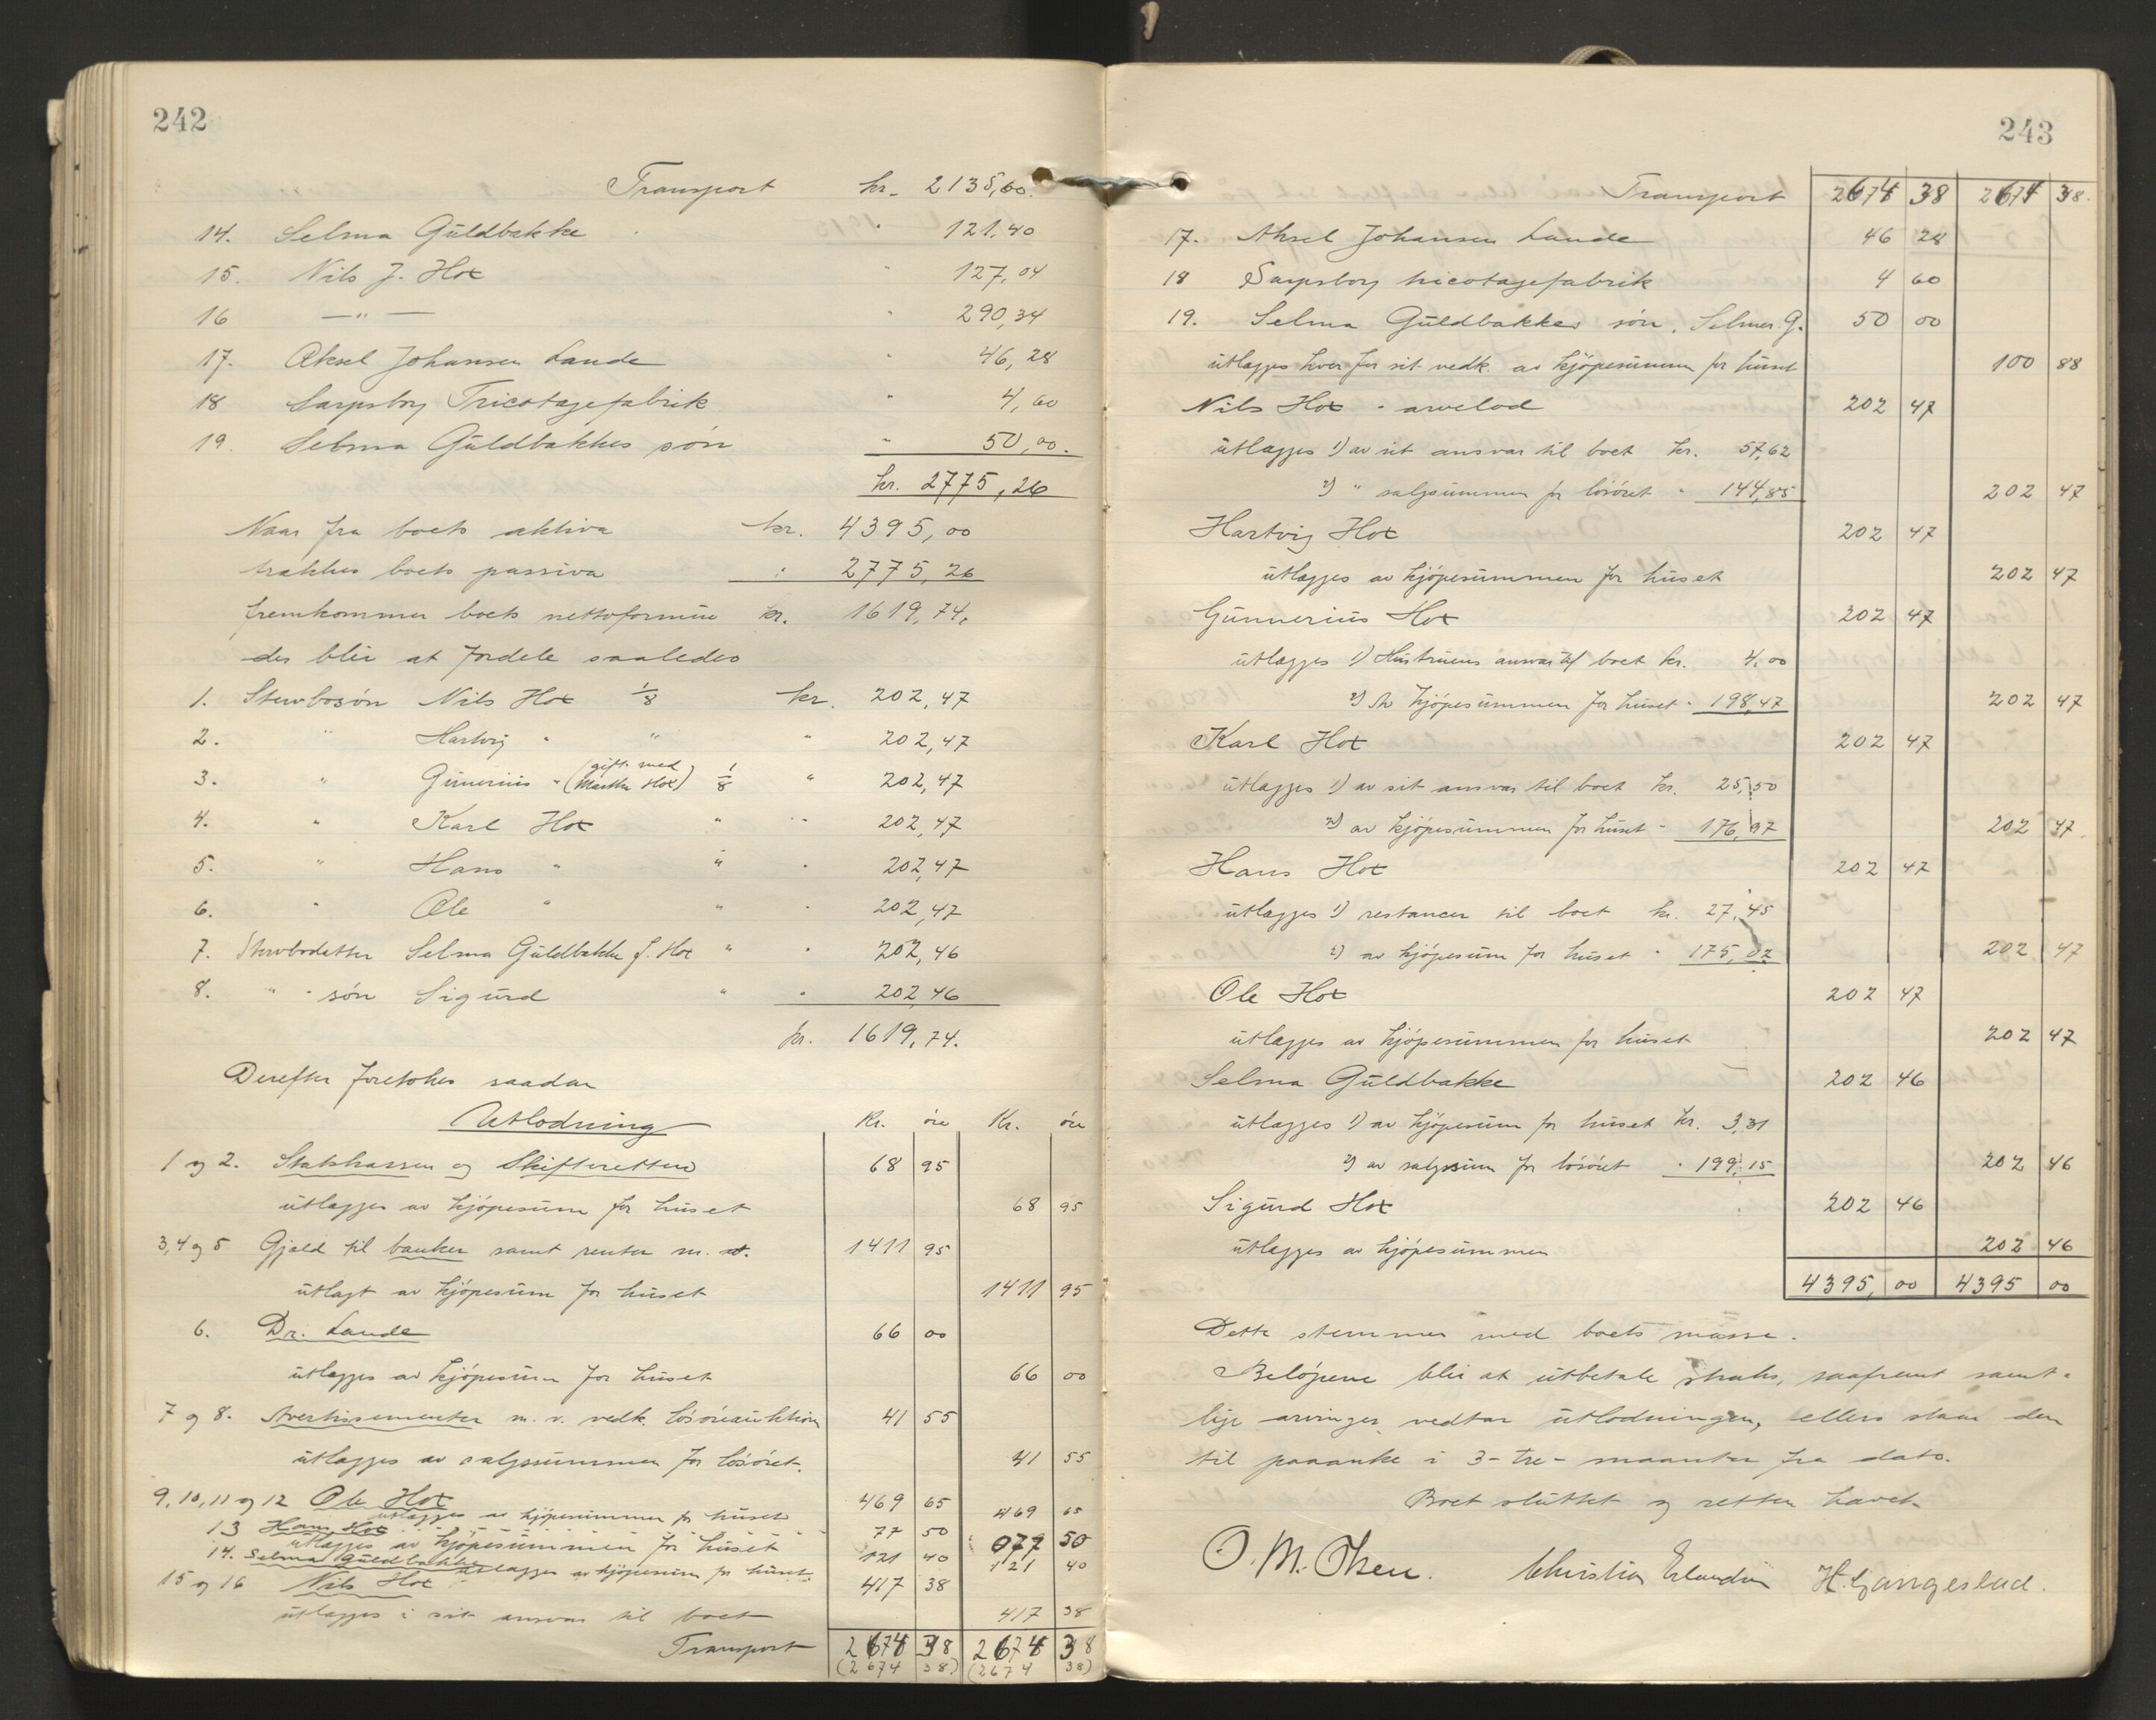 242
Transport kr. 2135,60.
14. Selma Güldbakke " 121.40
15. Nils J. Hox " 127,04
16 — " — " 290,34
17. Aksel Johansen Lande " 46,28
18 Sarpsborg Tricotagefabrik " 4,60
19. Selma Güldbakkes søn " 50,00.
kr. 2775,26
Naar fra boets aktiva kr. 4395,00
trækkes boets passiva : 2775,26
fremkommer boets nettoformüe kr. 1619,74,
der blir at fordele saaledes
1. Stervbosøn Nils Hox 1/8 kr. 202,47
2. " Hartvig " " " 202,47
3. " Günerius " (gift med Marthe Hox) 1/8 " 202,47
4. " Karl Hox " " 202,47
5. " Hans " " " 202,47
6. " Ole " " " 202,47
7. Stervbodatter Selma Güldbakke f. Hox " " 202,46
8. " " søn Sigürd " " 202,46
kr. 1619,74.
Derefter foretokes saadan
Utlodning Kr. øre Kr. øre
1 og 2. Statskassen og Skifteretten 68 95
ütlægges av kjöpesüm for hüset 68 95
3,4 og 5 Gjæld til banker samt renter m. v. 1411 95
ütlagt av kjöpesüm for hüset 1411 95
6. Dr. Lande 66 00
ütlægges av kjöpesüm for hüset 66 00
7 og 8. Avertissementer m. v. vedk. løsøreaüktion 41 55
ütlægges av salgssümmen for løsøret. 41 55
9, 10, 11 og 12 Ole Hox 469 65
ütlægges av kjöpesümmen for hüset 469 65
13 Hans Hox 77 50
ütlægges av kjöpesümmen for hüset 077 50
14. Selma Güldbakke ütlægges av kjöpesüm for hüset 121 40 121 40
15 og 16 Nils Hox 417 38
ütlægges i sit ansvar til boet 417 38
Transport 2674 38 2674 38
(2674 38) (2674 38)
243
Transport 2674 38 2674 38.
17. Aksel Johansen Lande 46 28
18 Sarpsborg tricotagefabrik 4 60
19. Selma Güldbakkes søn, Selmer G. 50 00
ütlægges hver for sit vedk. av kjöpesümmen for hüset 100 88
Nils Hox - arvelod 202 47
ütlægges 1) av sit ansvar til boet kr. 57,62
2) " salgssümmen for løsøret " 144,85 202 47
Hartvig Hox 202 47
ütlægges av kjöpesümmen for hüset 202 47
Günnerius Hox 202 47
ütlægges 1) Hüstrüens ansvar til boet kr. 4,00
2) av kjöpesümmen for hüset " 198,47 202 47
Karl Hox 202 47
ütlægges 1) av sit ansvar til boet kr. 25,50
2) av kjöpesümmen for hüset - 176,97 202 47.
Hans Hox 202 47
ütlægges 1) restancer til boet kr. 27,45
2) av kjöpesüm for hüset " 175,02 202 47
Ole Hox 202 47
ütlægges av kjöpesümmen for hüset 202 47
Selma Güldbakke 202 46
ütlægges 1) av kjöpesüm for hüset kr. 3,31
2) av salgssüm for løsøret " 199,15 202 46
Sigürd Hox 202 46
ütlægges av kjöpesümmen 202 46
4395,00 4395 00
Dette stemmer med boets masse.
Beløpene blir at ütbetale straks, saafremt samt-
lige arvinger vedtar ütlodningen, ellers staar den
til paaanke i 3- tre- maaneder fra dato.
Boet slüttet og retten hævet.
O. M. Olsen. Christian Erlandsen H. Gangestad.